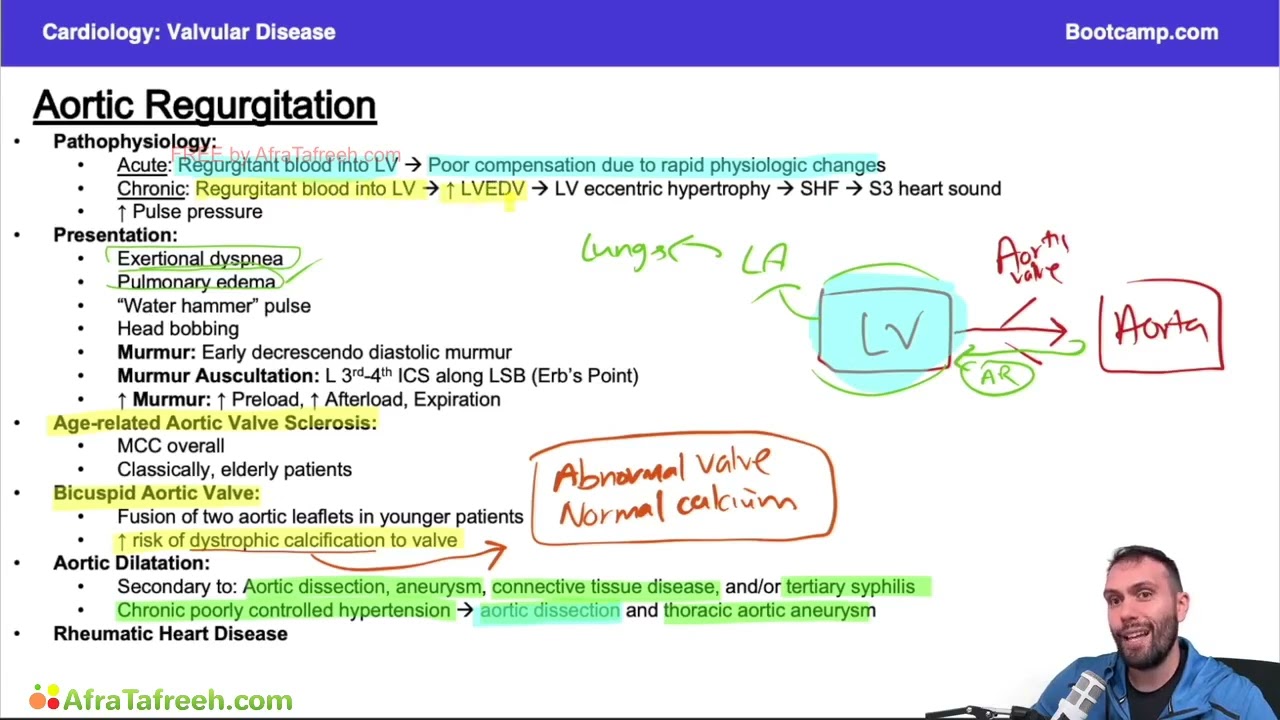 Cardiology: Valvular Disease
Bootcamp.com
Aortic Regurgitation
• Pathophysiology:
FREE by AfraTafreeh.com
• Acute: Regurgitant blood into LV → Poor compensation due to rapid physiologic changes
• Chronic: Regurgitant blood into LV → ↑ LVEDV → LV eccentric hypertrophy → SHF → S3 heart sound
• ↑ Pulse pressure
• Presentation:
• Exertional dyspnea
• Pulmonary edema
• “Water hammer” pulse
• Head bobbing
• Murmur: Early decrescendo diastolic murmur
• Murmur Auscultation: L 3rd-4th ICS along LSB (Erb’s Point)
• ↑ Murmur: ↑ Preload, ↑ Afterload, Expiration
• Age-related Aortic Valve Sclerosis:
• MCC overall
• Classically, elderly patients
• Bicuspid Aortic Valve:
• Fusion of two aortic leaflets in younger patients
• ↑ risk of dystrophic calcification to valve
• Aortic Dilatation:
• Secondary to: Aortic dissection, aneurysm, connective tissue disease, and/or tertiary syphilis
• Chronic poorly controlled hypertension → aortic dissection and thoracic aortic aneurysm
• Rheumatic Heart Disease
Lungs
LA
LV
Aortic
valve
Aorta
AR
Abnormal valve
Normal calcium
AfraTafreeh.com